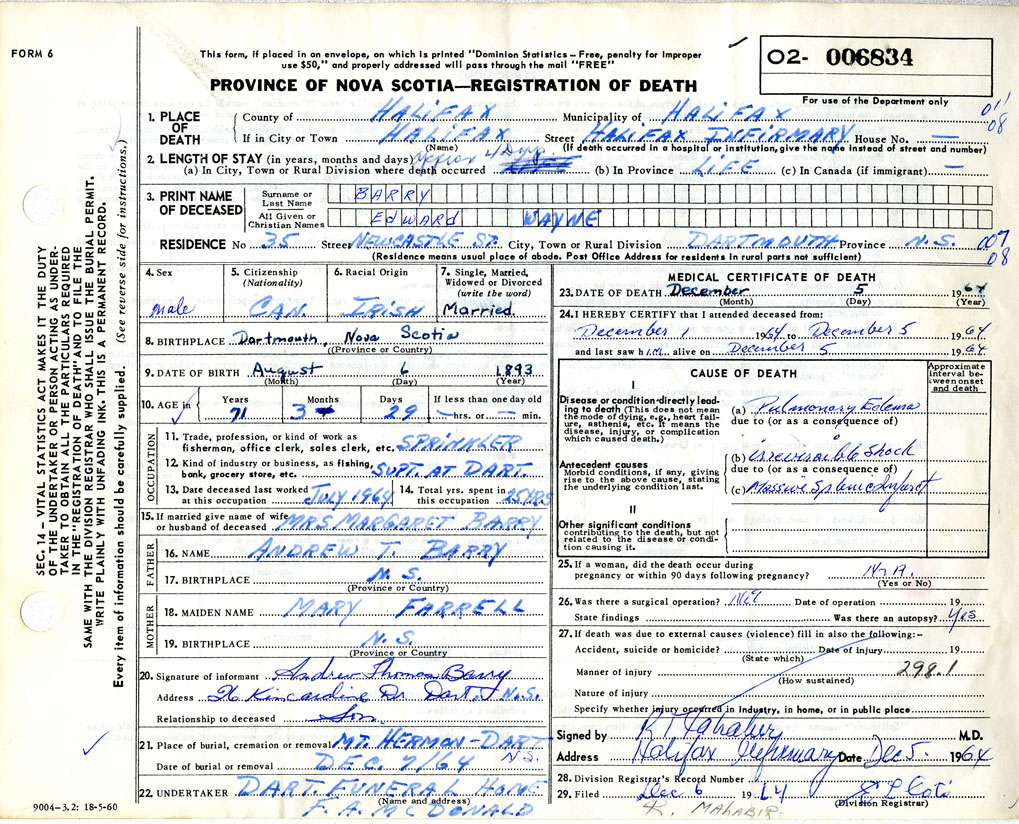 FORM 6
This form, if placed in an envelope, on which is printed "Dominion Statistics – Free, penalty for improper
use $50," and properly addressed will pass through the mail "FREE"
PROVINCE OF NOVA SCOTIA—REGISTRATION OF DEATH
02- 006834
For use of the Department only
011
08
1. PLACE OF DEATH
County of HALIFAX Municipality of HALIFAX
If in City or Town HALIFAX Street HALIFAX INFIRMARY House No. —
(Name) (If death occurred in a hospital or institution, give the name instead of street and number)
2. LENGTH OF STAY (in years, months and days) 4 Days
(a) In City, Town or Rural Division where death occurred (b) In Province LIFE (c) In Canada (if immigrant) —
3. PRINT NAME OF DECEASED
Surname or Last Name BARRY
All Given or Christian Names EDWARD WAYNE
RESIDENCE No 35 Street NEWCASTLE ST. City, Town or Rural Division DARTMOUTH Province N.S.
007
08
(Residence means usual place of abode. Post Office Address for residents in rural parts not sufficient)
4. Sex
male
5. Citizenship
(Nationality)
CAN.
6. Racial Origin
IRISH
7. Single, Married,
Widowed or Divorced
(write the word)
Married.
8. BIRTHPLACE Dartmouth, Nova Scotia
(Province or Country)
9. DATE OF BIRTH August 6 1893
(Month) (Day) (Year)
10. AGE in
Years Months Days If less than one day old
71 3 29 — hrs. or — min.
OCCUPATION
11. Trade, profession, or kind of work as
fisherman, office clerk, sales clerk, etc. SPRINKLER
12. Kind of industry or business, as fishing,
bank, grocery store, etc. SUPT. AT DART.
13. Date deceased last worked
at this occupation JULY 1964
14. Total yrs. spent in
this occupation 45 YRS
15. If married give name of wife
or husband of deceased MRS MARGARET BARRY
FATHER
16. NAME ANDREW T. BARRY
17. BIRTHPLACE N.S.
(Province or Country)
MOTHER
18. MAIDEN NAME MARY FARRELL
19. BIRTHPLACE N.S.
(Province or Country
20. Signature of informant Andrew Thomas Barry
Address 26 Kincardine Dr. Dart. N.S.
Relationship to deceased Son.
21. Place of burial, cremation or removal MT. HERMON-DART
N.S.
Date of burial or removal DEC. 7/64
22. UNDERTAKER DART. FUNERAL HOME
(Name and address)
F. A. MCDONALD
9004-3.2: 18-5-60
MEDICAL CERTIFICATE OF DEATH
23. DATE OF DEATH December 5 1964
(Month) (Day) (Year)
24. I HEREBY CERTIFY that I attended deceased from:
December 1 1964 to December 5 1964
and last saw him alive on December 5 1964
CAUSE OF DEATH
Approximate
interval be-
tween onset
and death
I
Disease or condition directly lead-
ing to death (This does not mean
the mode of dying, e.g., heart fail-
ure, asthenia, etc. It means the
disease, injury, or complication
which caused death.)
(a) Pulmonary Edema
due to (or as a consequence of)
Antecedent causes
Morbid conditions, if any, giving
rise to the above cause, stating
the underlying condition last.
(b) irreversible Shock
due to (or as a consequence of)
(c) Massive Splenic Infarct
II
Other significant conditions
contributing to the death, but not
related to the disease or condi-
tion causing it.
25. If a woman, did the death occur during
pregnancy or within 90 days following pregnancy? N.A.
(Yes or No)
26. Was there a surgical operation? Date of operation 19
State findings Was there an autopsy? Yes
27. If death was due to external causes (violence) fill in also the following:–
Accident, suicide or homicide? Date of injury 19
(State which)
Manner of injury 298.1
(How sustained)
Nature of injury
Specify whether injury occurred in industry, in home, or in public place
Signed by M.D.
Address Halifax Infirmary Date Dec 5. 1964
28. Division Registrar's Record Number
29. Filed Dec 6 1964
(Division Registrar)
R. MAHABIR
SEC. 14 – VITAL STATISTICS ACT MAKES IT THE DUTY
OF THE UNDERTAKER OR PERSON ACTING AS UNDER-
TAKER TO OBTAIN ALL THE PARTICULARS REQUIRED
IN THE "REGISTRATION OF DEATH" AND TO FILE THE
SAME WITH THE DIVISION REGISTRAR WHO SHALL ISSUE THE BURIAL PERMIT.
WRITE PLAINLY WITH UNFADING INK. THIS IS A PERMANENT RECORD.
Every item of information should be carefully supplied. (See reverse side for instructions.)